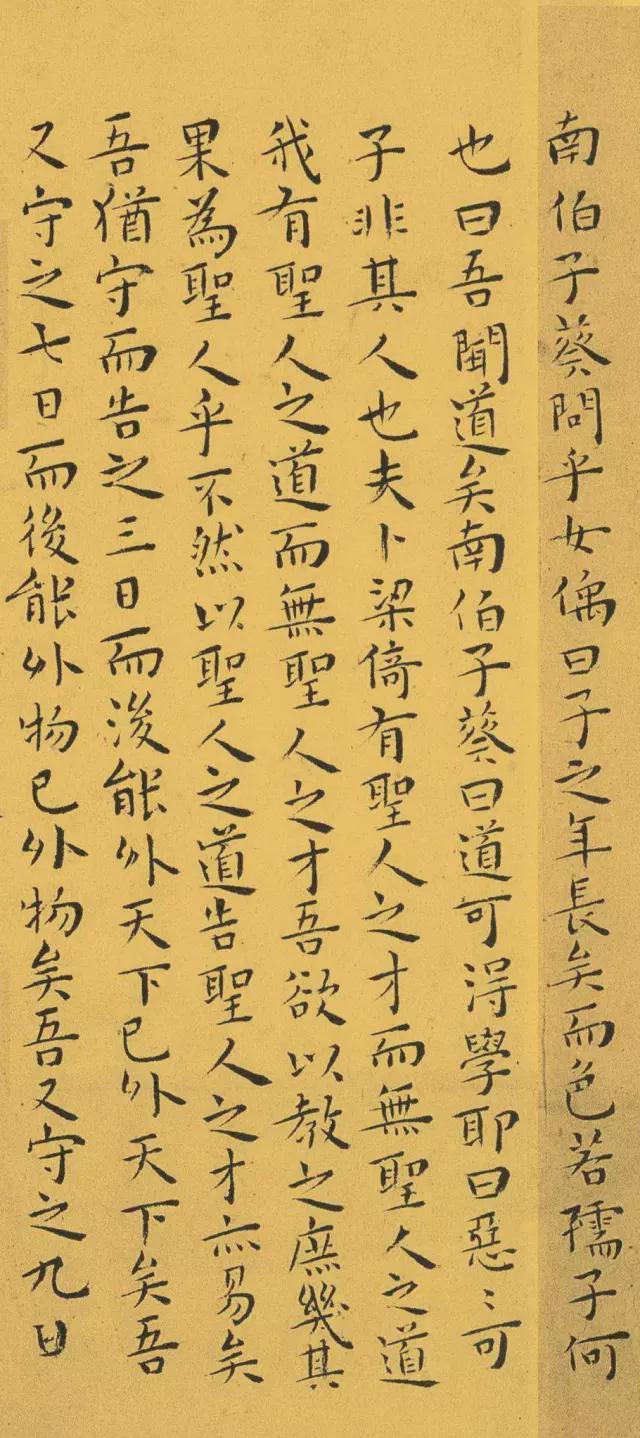 南伯子葵問乎女偊曰子之年長矣而色若孺子何
也曰吾聞道矣南伯子葵曰道可得學耶曰惡〻可
子非其人也夫卜梁倚有聖人之才而無聖人之道
我有聖人之道而無聖人之才吾欲以教之庶幾其
果為聖人乎不然以聖人之道告聖人之才亦易矣
吾猶守而告之三日而後能外天下已外天下矣吾
又守之七日而後能外物已外物矣吾又守之九日